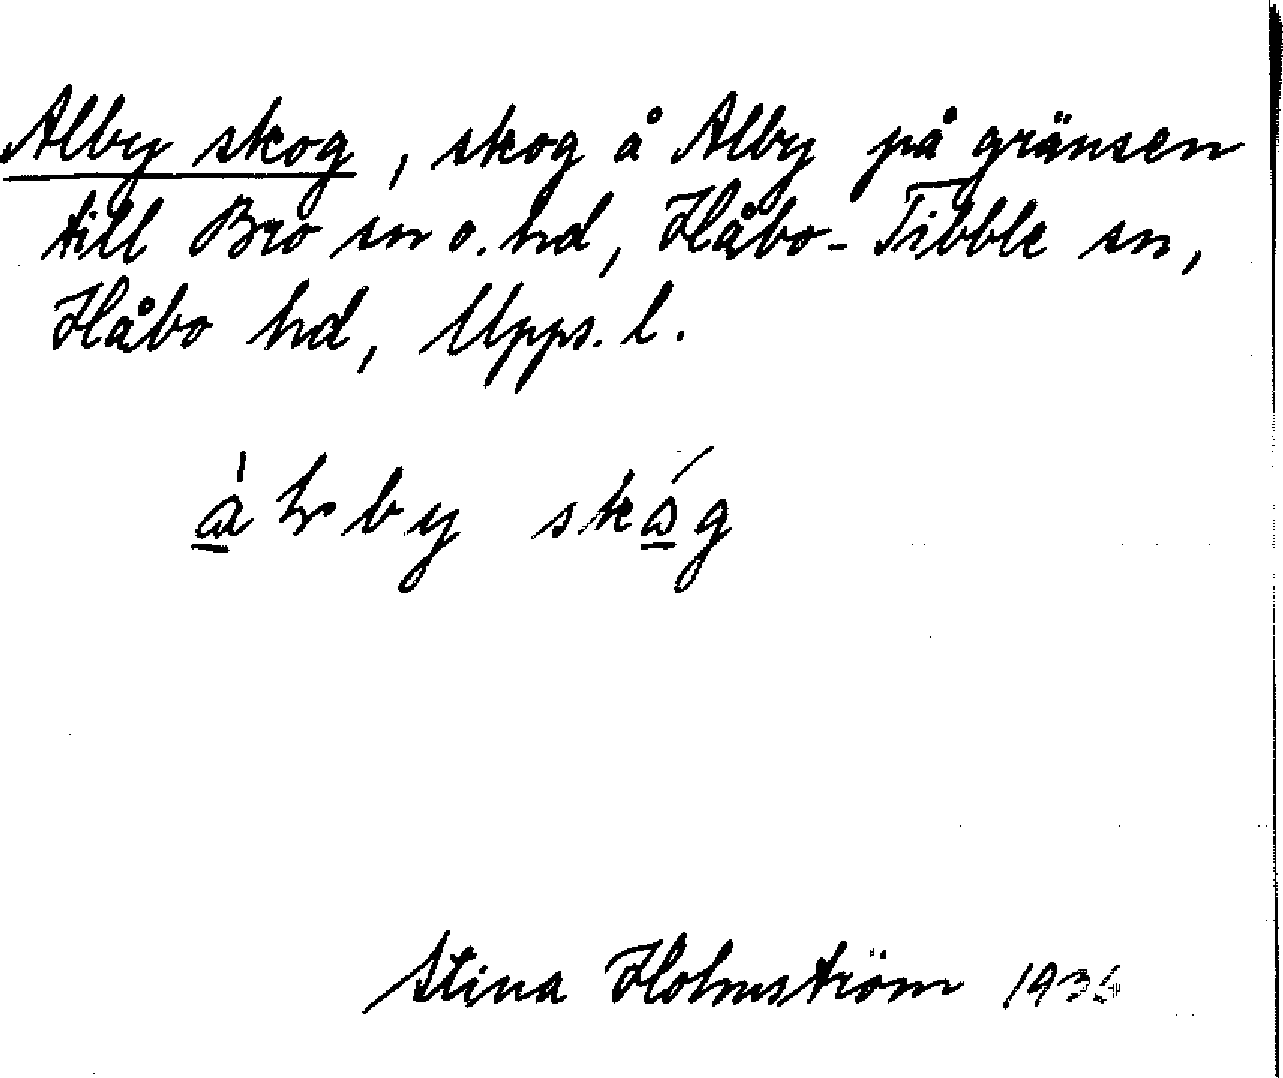 Alby skog, skog å Alby på gränsen
till Bro sn o. hd, Håbo-Tibble sn,
Håbo hd, Upps. l.
Stina Holmström